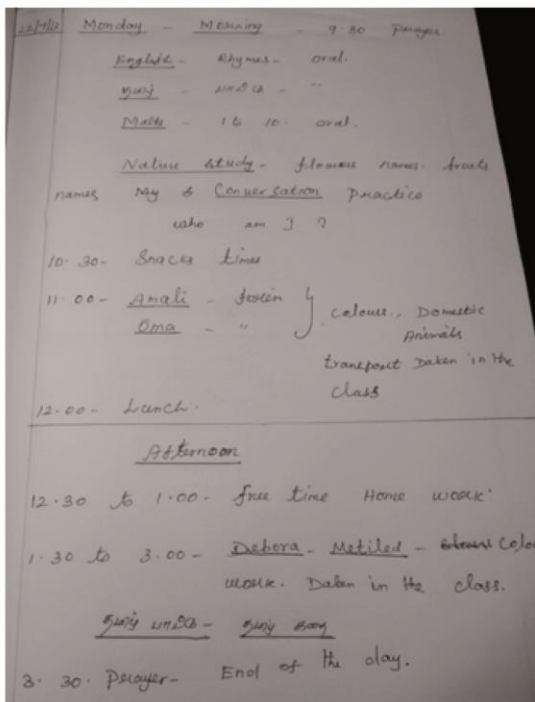 Monday - Morning - 9.30 Prayer
English - Rhymes - oral.
தமிழ் - பாடல் - "
Maths - 1 to 10. oral.
Nature study - flowers names. fruits
names My & Conversation Practice
who am I ?
10.30 - Snacks times
11.00 - Amali -
Oma - " } Colours, Domestic
Animals
transport Daken in the
class
12.00 - Lunch.
Afternoon
12.30 to 1.00 - free time Home work.
1.30 to 3.00 - Debora - Metiled - Colo
work. Daken in the class.
தமிழ் பாடல் - தமிழ் கதை
3.30. Prayer - End of the day.